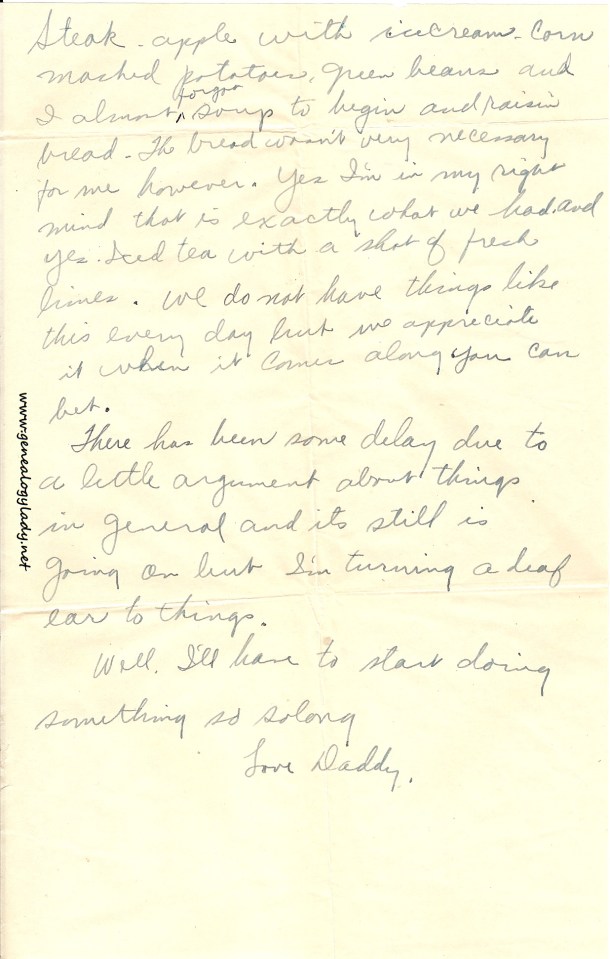 Steak - apple with icecream - Corn
mashed potatoes, green beans and
forgot
I almost ^ soup to begin and raisin
bread - The bread wasn't very necessary
for me however. Yes I'm in my right
mind that is exactly what we had. and
yes. Iced tea with a shot of fresh
limes. We do not have things like
this every day but we appreciate
it when it comes along you can
bet.
There has been some delay due to
a little argument about things
in general and its still is
going on but I'm turning a deaf
ear to things.
Well, I'll have to start doing
something so solong
Love Daddy.
www.genealogylady.net